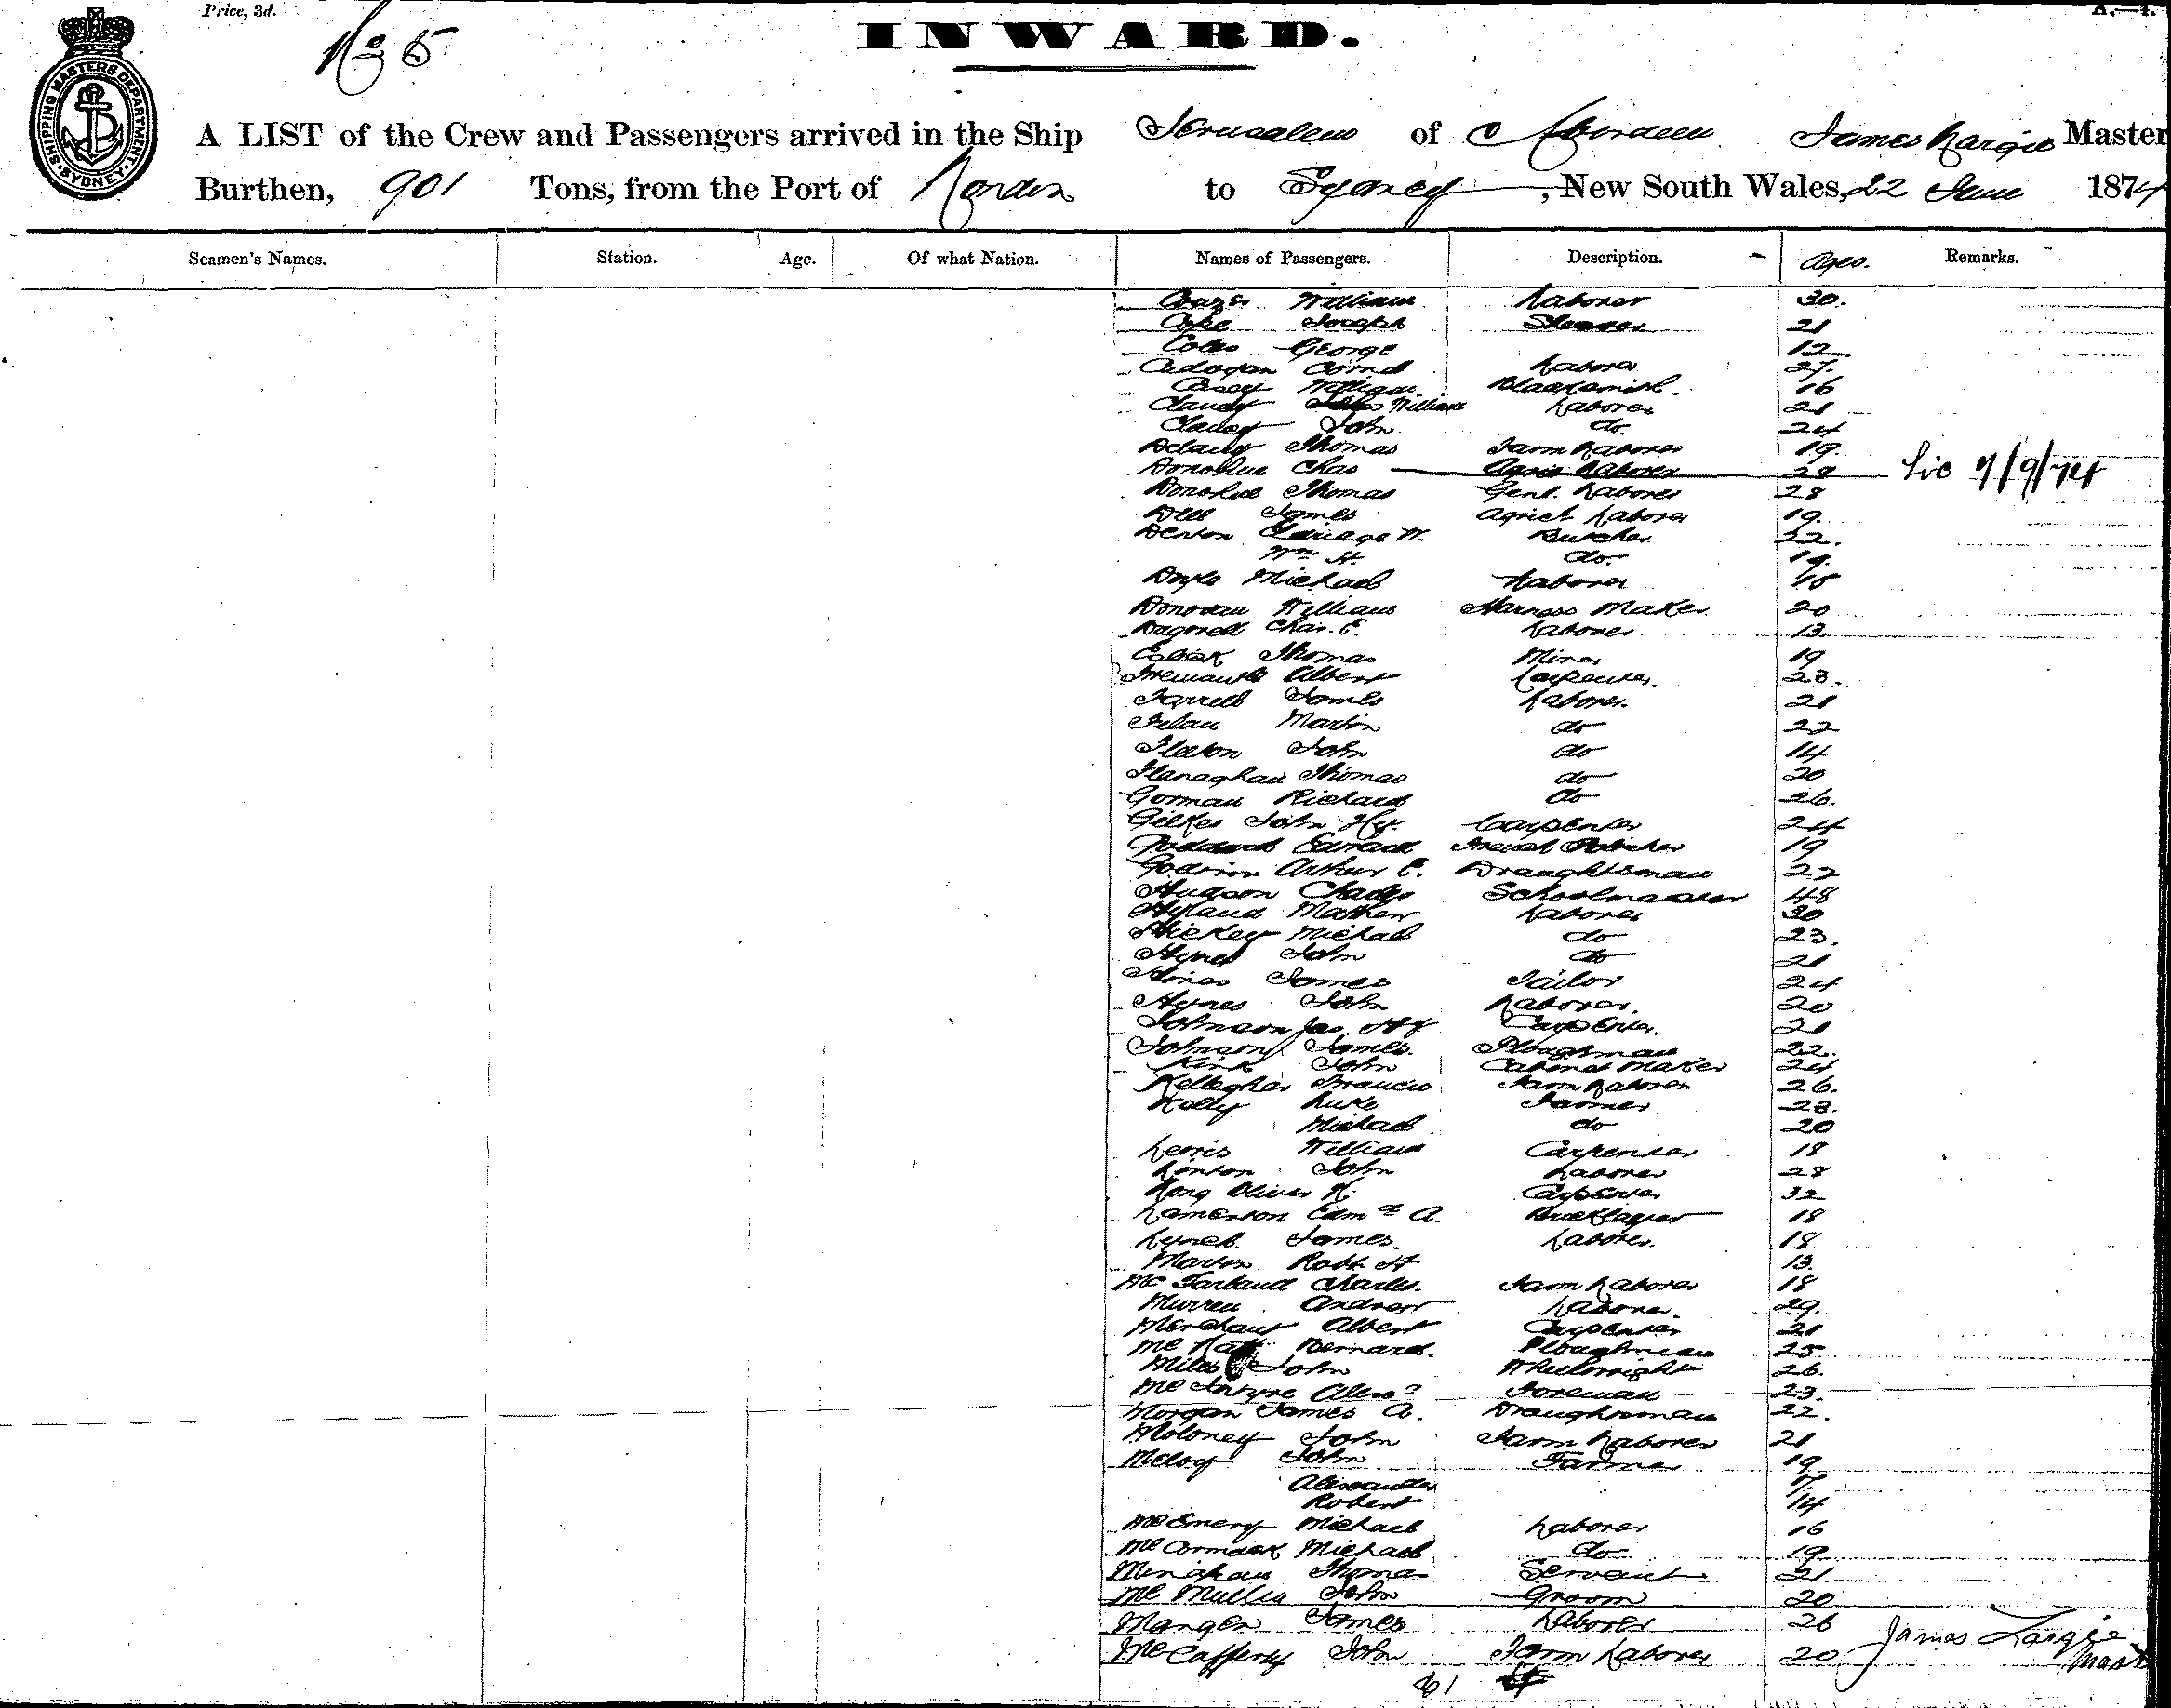 Price, 3d.
No 5
INWARD.
A.—4.
SHIPPING MASTERS DEPARTMENT SYDNEY
A LIST of the Crew and Passengers arrived in the Ship Jerusalem of Aberdeen James Largie Master
Burthen, 901 Tons, from the Port of London to Sydney, New South Wales, 22 June 1874
Seamen's Names. Station. Age. Of what Nation. Names of Passengers. Description. Ages. Remarks.
William Laborer 30.
Coke Joseph 21
Coles George 12
Cadogan Laborer 27.
Casey William Blacksmith. 16
Clancy William Laborer 21
Clancy John do. 24
Delany Thomas Farm Laborer 19.
Donohue Chas Agric Laborer 28 Lic 7/9/74
Donohue Thomas Genl. Laborer 28
Dell James Agricl Laborer 19.
Denton W. Butcher 22.
Wm H. do. 19.
Doyle Michael Laborer
Donovan William Harness Maker 20
Chas. E. Laborer 13
Thomas Miner 19
Fremantle Albert Carpenter. 23.
Farrell James Laborer. 21
Martin do 22
John do 14
Flanaghan Thomas do 20
Gorman Richard do 26.
Gilkes John Hy. Carpenter 24
Goddard Edward 19
Arthur E. Draughtsman 22
Hudson Charles Schoolmaster 48
Hyland Mathew Laborer 30
Hickey Michael do 23.
Hynes John do 21
Hines James Tailor 24
Hynes John Laborer. 20
Johnson Jas. Hy Carpenter. 21
Johnson James. Ploughman 22.
Kirk John Cabinet Maker 24
Kellegher Francis Farm Laborer 26.
Kelly Luke Farmer 28.
Michael do 20
Lewis William Carpenter 18
Linton John Laborer 28
Long Oliver K. Carpenter 32
Lamerton Edmd A. Bricklayer 18
Lynch James. Laborer. 18.
Marton Robt H 13.
McFarland Charles. Farm Laborer 18
Murren Andrew Laborer. 29.
Merchant Albert Carpenter 21
Bernard. Ploughman 25
Miles John Wheelwright 26.
McIntyre Alexr Foreman 23.
Morgan James A. Draughtsman 22.
Moloney John Farm Laborer 21
John Farmer 19
Alexander 17
Robert 14
McEnery Michael Laborer 16
McCormack Michael do 19
Minahan Thomas Servant 21.
McMullin John Groom 20
Mangen James Laborer 26 James Largie
McCafferty John Farm Laborer 20 Mast
61